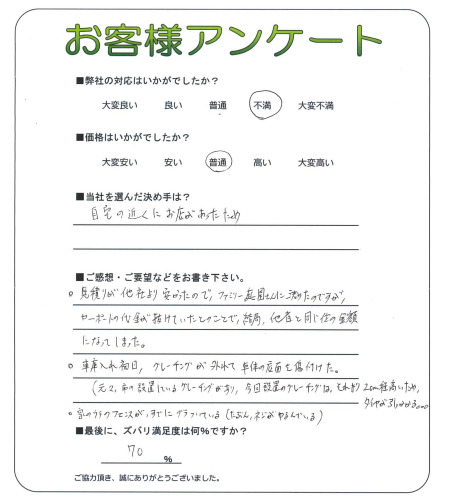 お客様アンケート
■弊社の対応はいかがでしたか？
大変良い 良い 普通 不満 大変不満
■価格はいかがでしたか？
大変安い 安い 普通 高い 大変高い
■当社を選んだ決め手は？
自宅の近くにお店があったため
■ご感想・ご要望などをお書き下さい。
。見積りが他社より安かったので、ファミリー庭園さんに決めたのですが、
カーポートの代金が抜けていたとのことで、結局、他者と同じ位の金額
になってしまった。
。車庫入れ初日、グレーチングが外れて車体の底面を傷付けた。
（元々、市の設置しているグレーチングがあり、今回設置のグレーチングは、それより2cm程高いため、
タイヤが引っかかる。。。）
。家のうらのフェンスが、すでにグラついている（たぶん、ネジがゆるんでいる）
■最後に、ズバリ満足度は何%ですか？
70 %
ご協力頂き、誠にありがとうございました。